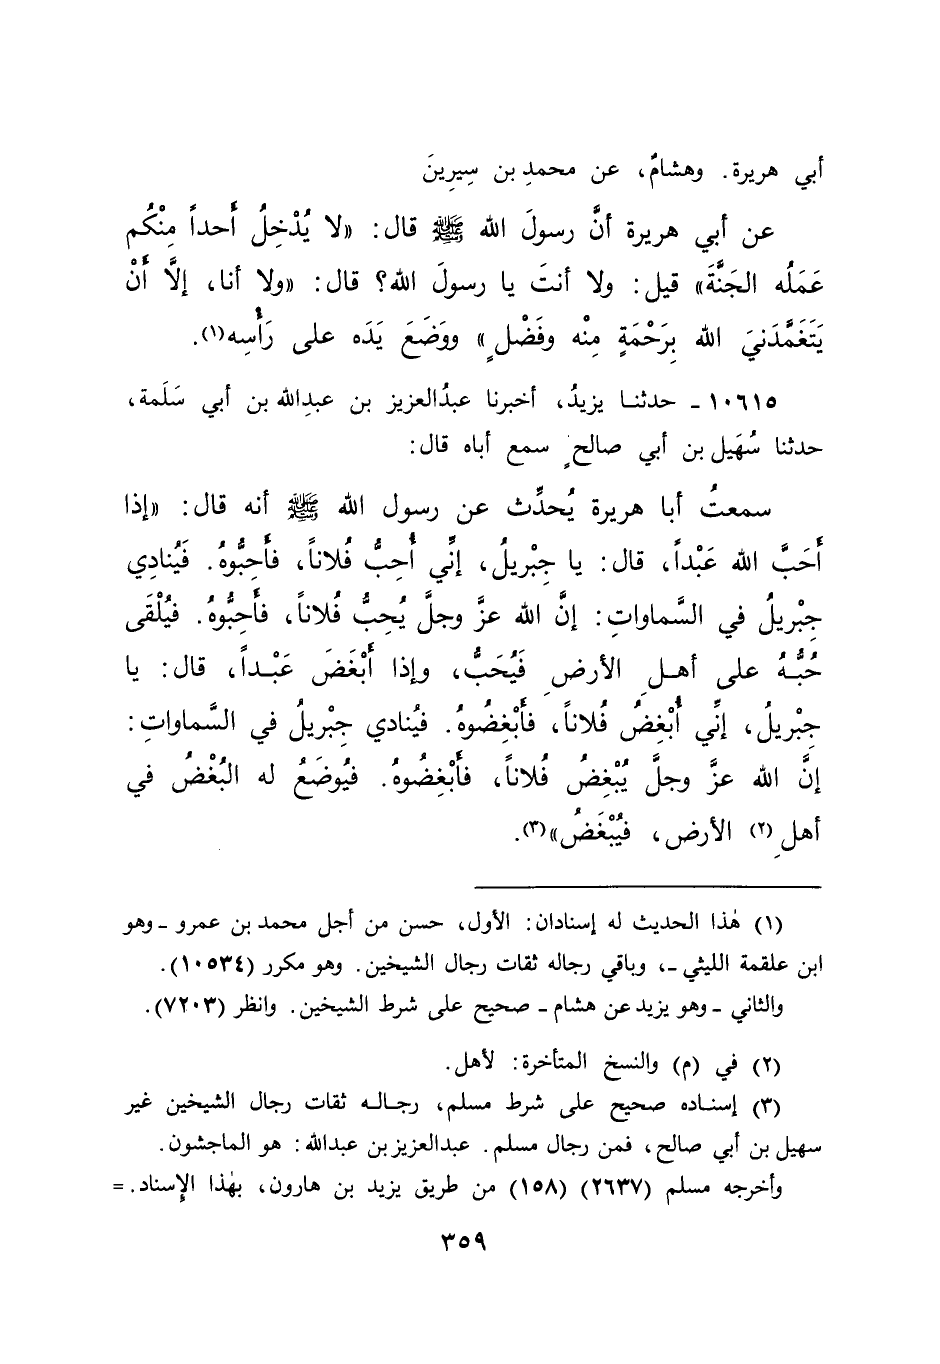 أبي هريرة. وهشامٌ، عن محمدِ بن سِيرِينَ
عن أبي هريرة أنَّ رسولَ الله ﷺ قال: «لا يُدْخِلُ أَحداً مِنْكُم
عَمَلُه الجَنَّةَ» قيل: ولا أنتَ يا رسولَ الله؟ قال: «ولا أنا، إلَّا أَنْ
يَتَغَمَّدَنيَ الله بِرَحْمَةٍ مِنْه وفَضْلٍ» ووَضَعَ يَدَه على رَأْسِه(١).
١٠٦١٥ ـ حدثنا يزيدُ، أخبرنا عبدُالعزيز بن عبدِالله بن أبي سَلَمة،
حدثنا سُهَيل بن أبي صالحٍ سمع أباه قال:
سمعتُ أبا هريرة يُحدِّث عن رسول الله ﷺ أنه قال: «إذا
أَحَبَّ الله عَبْداً، قال: يا جِبْريلُ، إنِّي أُحِبُّ فُلاناً، فأَحِبُّوهُ. فَيُنادِي
جِبْريلُ في السَّماواتِ: إنَّ الله عزَّ وجلَّ يُحِبُّ فُلاناً، فأَحِبُّوهُ. فيُلْقَى
حُبُّهُ على أهلِ الأرضِ فَيُحَبُّ، وإذا أَبْغَضَ عَبْداً، قال: يا
جِبْريلُ، إنِّي أُبْغِضُ فُلاناً، فأَبْغِضُوهُ. فيُنادي جِبْريلُ في السَّماواتِ:
إنَّ الله عزَّ وجلَّ يُبْغِضُ فُلاناً، فأَبْغِضُوهُ. فيُوضَعُ له البُغْضُ في
أهلِ(٢) الأرض، فيُبْغَضُ»(٣).
(١) هٰذا الحديث له إسنادان: الأول، حسن من أجل محمد بن عمرو ـ وهو
ابن علقمة الليثي ـ، وباقي رجاله ثقات رجال الشيخين. وهو مكرر (١٠٥٣٤).
والثاني ـ وهو يزيد عن هشام ـ صحيح على شرط الشيخين. وانظر (٧٢٠٣).
(٢) في (م) والنسخ المتأخرة: لأهل.
(٣) إسناده صحيح على شرط مسلم، رجاله ثقات رجال الشيخين غير
سهيل بن أبي صالح، فمن رجال مسلم. عبدالعزيز بن عبدالله: هو الماجشون.
وأخرجه مسلم (٢٦٣٧) (١٥٨) من طريق يزيد بن هارون، بهٰذا الإسناد. =
٣٥٩